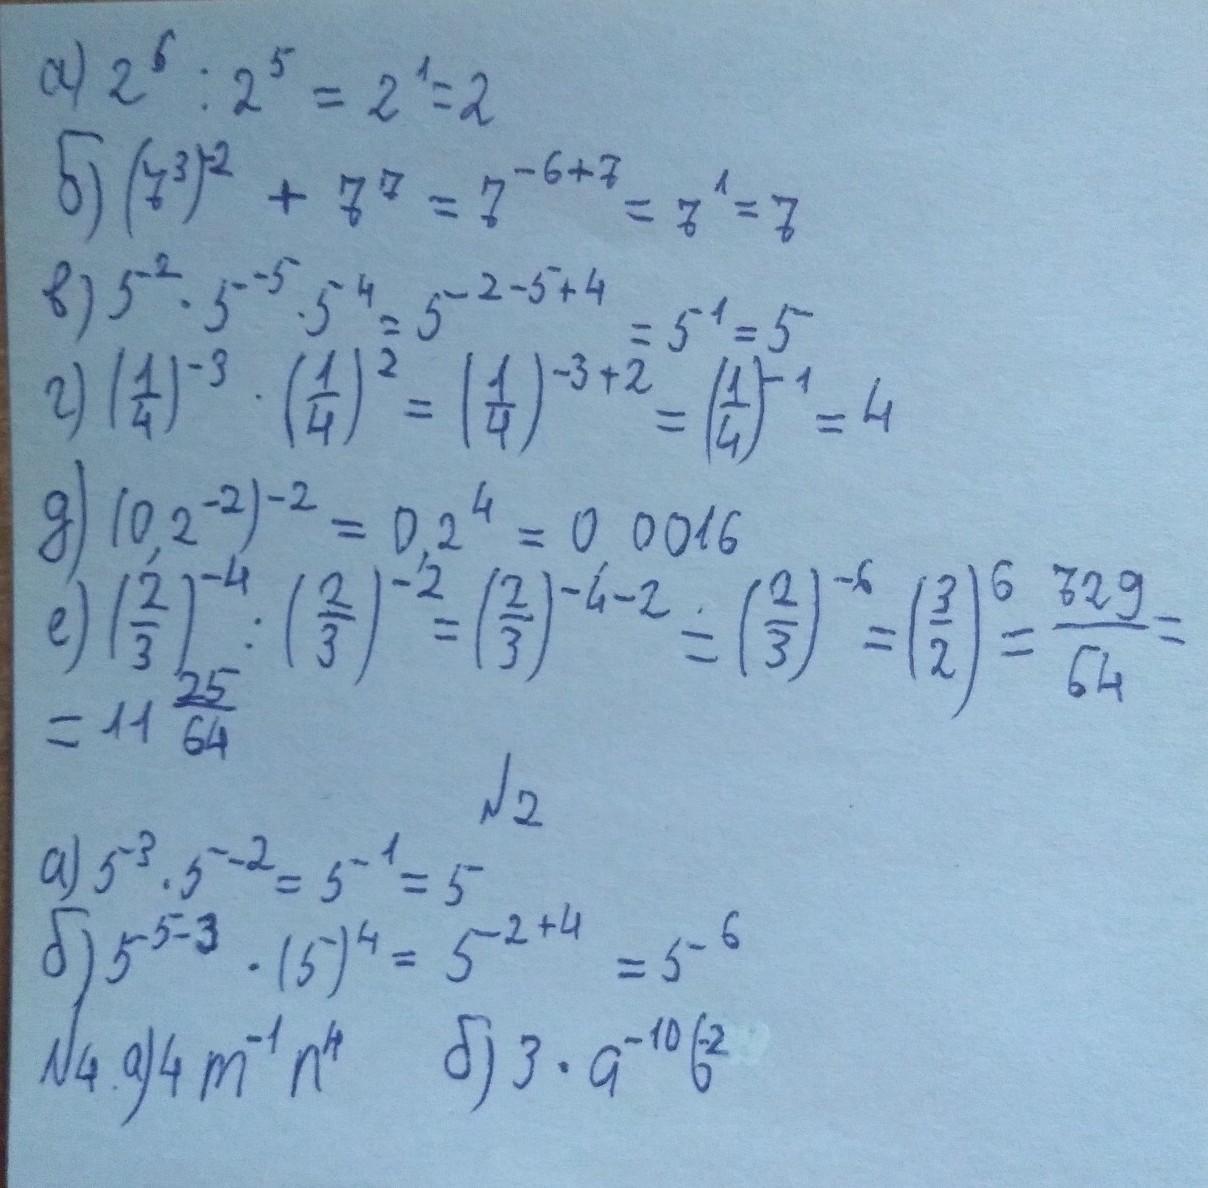 а) 2⁶ : 2⁵ = 2¹ = 2
б) (7³)⁻² + 7⁷ = 7⁻⁶⁺⁷ = 7¹ = 7
в) 5⁻² · 5⁻⁵ · 5⁴ = 5⁻²⁻⁵⁺⁴ = 5¹ = 5
г) (1/4)⁻³ · (1/4)² = (1/4)⁻³⁺² = (1/4)⁻¹ = 4
д) (0,2⁻²)⁻² = 0,2⁴ = 0,0016
е) (2/3)⁻⁴ : (2/3)⁻² = (2/3)⁻⁴⁻² = (2/3)⁻⁶ = (3/2)⁶ = 729/64 =
= 11 25/64
№2
а) 5³ · 5⁻² = 5⁻¹ = 5
б) 5⁵⁻³ · (5)⁴ = 5²⁺⁴ = 5⁶
№4. а) 4 m⁻¹ n⁴ б) 3 · a⁻¹⁰ b⁻²